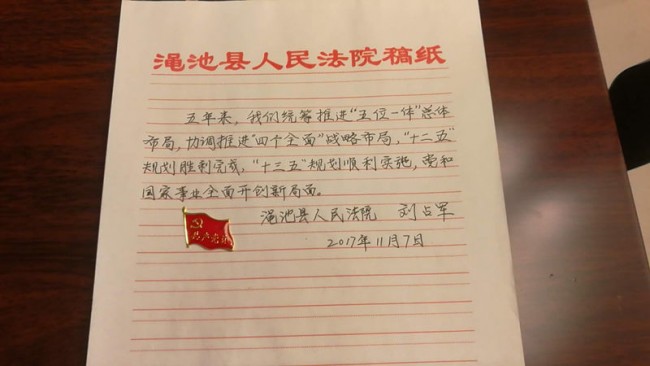 渑池县人民法院稿纸
五年来，我们统筹推进“五位一体”总体
布局，协调推进“四个全面”战略布局，“十二五”
规划胜利完成，“十三五”规划顺利实施，党和
国家事业全面开创新局面。
渑池县人民法院 刘占军
2017年11月7日